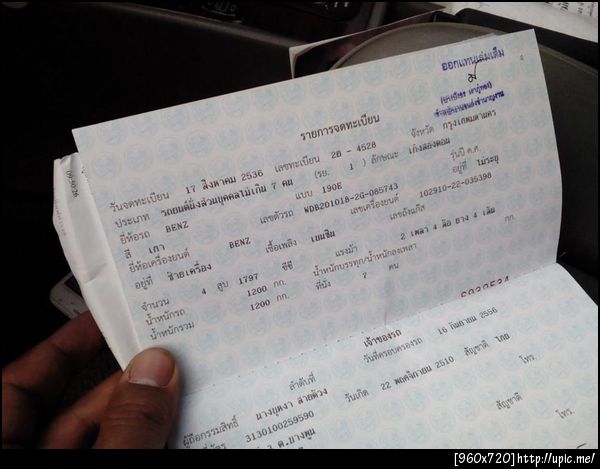 ออกแทนเล่มเต็ม
รายการจดทะเบียน
วันจดทะเบียน 17 สิงหาคม 2536 เลขทะเบียน 2B - 4528 จังหวัด กรุงเทพมหานคร
ประเภท รถยนต์นั่งส่วนบุคคลไม่เกิน 7 คน (รย. 1 ) ลักษณะ เก๋งสองตอน
ยี่ห้อรถ BENZ แบบ 190E รุ่นปี ค.ศ.
สี เทา เลขตัวรถ WDB201018-2G-085743 อยู่ที่ ไม่ระบุ
ยี่ห้อเครื่องยนต์ BENZ เลขเครื่องยนต์ 102910-22-035398
อยู่ที่ ซ้ายเครื่อง เชื้อเพลิง เบนซิน เลขถังแก๊ส
จำนวน 4 สูบ 1797 ซีซี แรงม้า 2 เพลา 4 ล้อ ยาง 4 เส้น
น้ำหนักรถ 1200 กก. น้ำหนักบรรทุก/น้ำหนักลงเพลา กก.
น้ำหนักรวม 1200 กก. ที่นั่ง 7 คน
เจ้าของรถ
ลำดับที่ วันที่ครอบครองรถ 16 กันยายน 2556
ผู้ถือกรรมสิทธิ์ นางบุตงา สายด้วง วันเกิด 22 พฤศจิกายน 2510 สัญชาติ ไทย
3130100259590 โทร.
3 ต.ยางตูม สัญชาติ
โทร.
[960x720]http://upic.me/